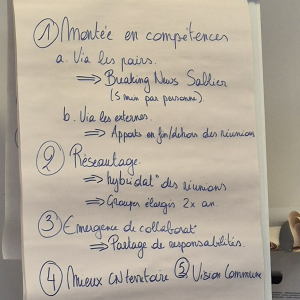 1 Montée en compétences
a. Via les pairs.
⇒ Breaking News Sablier
(5 min par personne)
b. Via les externes.
⇒ Apports en fin/dehors des réunions
2 Réseautage.
⇒ hybridat° des réunions
⇒ Groupes élargis 2x an.
3 Emergence de collaborat°
⇒ Partage de responsabilités.
4 Mieux CN territoire 5. Vision Commune